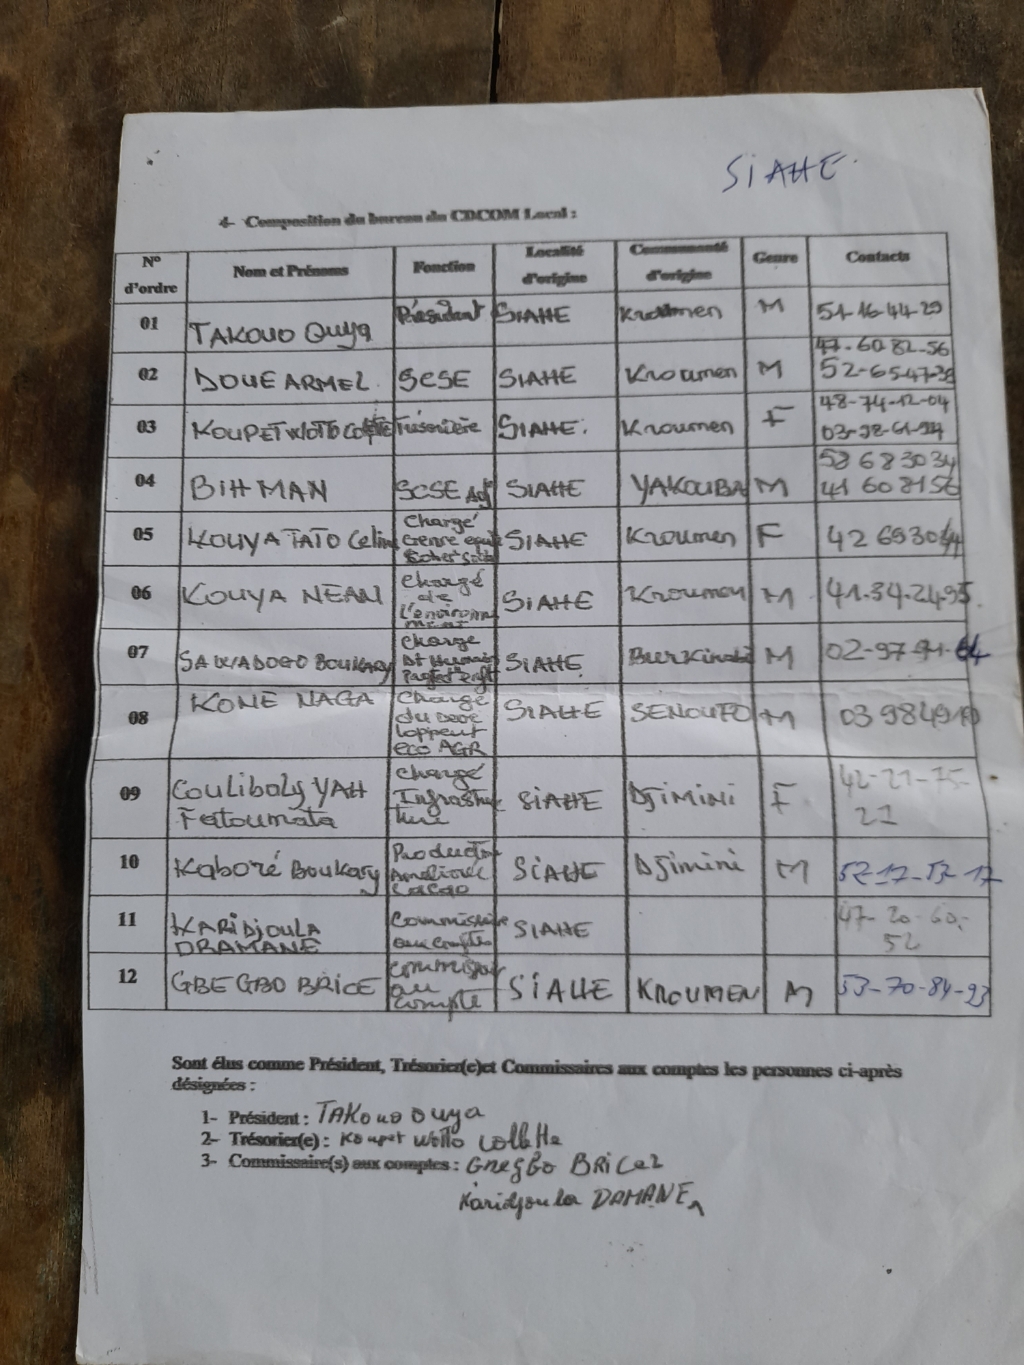 SIAHE.
4- Composition du bureau du CDCOM Local :
N° d'ordre Nom et Prénoms Fonction Localité d'origine Communauté d'origine Genre Contacts
01 TAKOUO OUYA Président SIAHE Kroumen M 51-16-44-29
02 DOUE ARMEL SCSE SIAHE Kroumen M 47-60-82-56
52-65-47-38
03 KOUPET WOTTO Trésorière SIAHE. Kroumen F 48-74-12-04
03-98-61-94
04 BIHMAN SCSE Adj SIAHE YAKOUBA M 58683034
41608156
05 KOUYA TATO Celine Chargé SIAHE Kroumen F 42693044
06 KOUYA NEAN Chargé
de
l'environn
ment SIAHE Kroumen M 41-34-24-95.
07 SAWADOGO BOUKARY Chargé SIAHE M 02-97-94-64
08 KONE NAGA Chargé
du deve
loppent
eco AGR SIAHE SENOUFO M 03984910
09 COULIBALY YAH
Fatoumata Chargé
Infrastruc
ture SIAHE DJIMINI F 42-21-75-
21
10 Kaboré Boukary Product
Améliorée
Cacao SIAHE DJimini M 57-17-57-17
11 KARIDJOULA
DRAMANE Commissaire
aux comptes SIAHE 47-20-60.-
52
12 GBEGBO BRICE Commissair
au
compte SIAHE KROUMEN M 53-70-84-93
Sont élus comme Président, Trésorier(e)et Commissaires aux comptes les personnes ci-après
désignées :
1- Président : TAKOUO OUYA
2- Trésorier(e) : Koupet Wotto Collette
3- Commissaire(s) aux comptes : GNEGBO BRICE
Karidjoula DAMANE